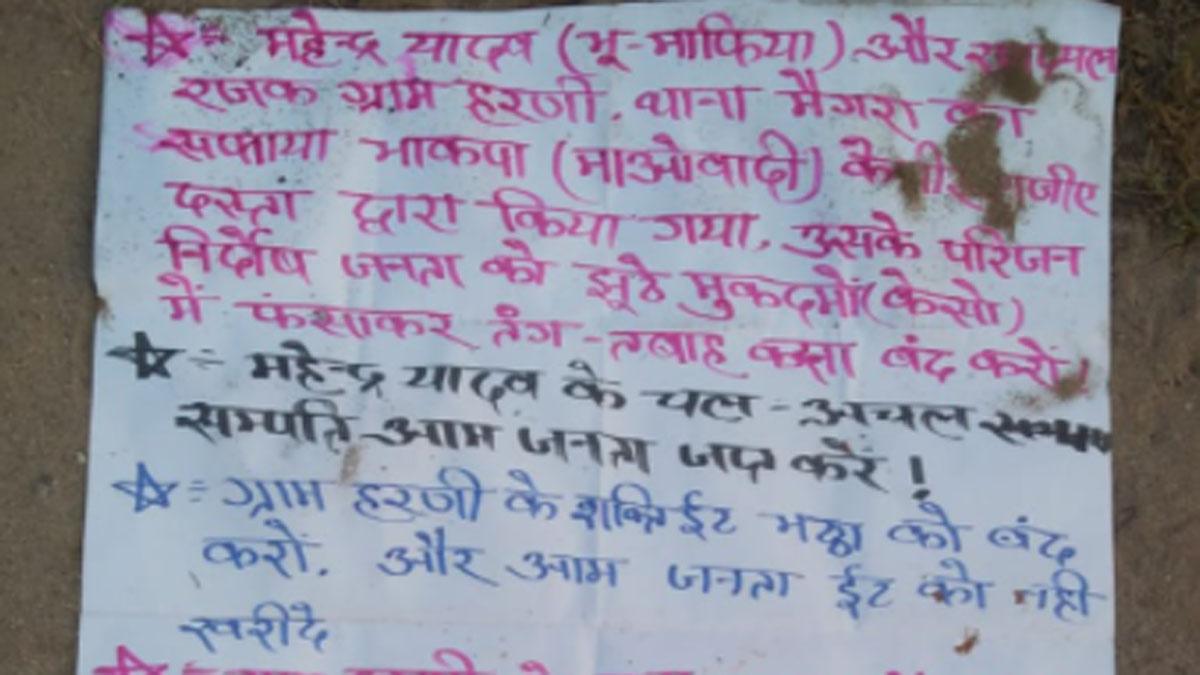 ☆= महेन्द्र यादव (भू-माफिया) और
रजक ग्राम हरणी. थाना मैगरा का
सफाया भाकपा (माओवादी) के
दस्ता द्वारा किया गया, उसके परिजन
निर्दोष जनता को झूठे मुकदमों(केसो)
में फंसाकर तंग-तबाह करना बंद करों!
☆= महेन्द्र यादव के चल-अचल
सम्पति आम जनता जप्त करें!
☆= ग्राम हरणी के शक्ति ईट भठ्ठा को बंद
करों. और आम जनता ईट को नही
खरीदे